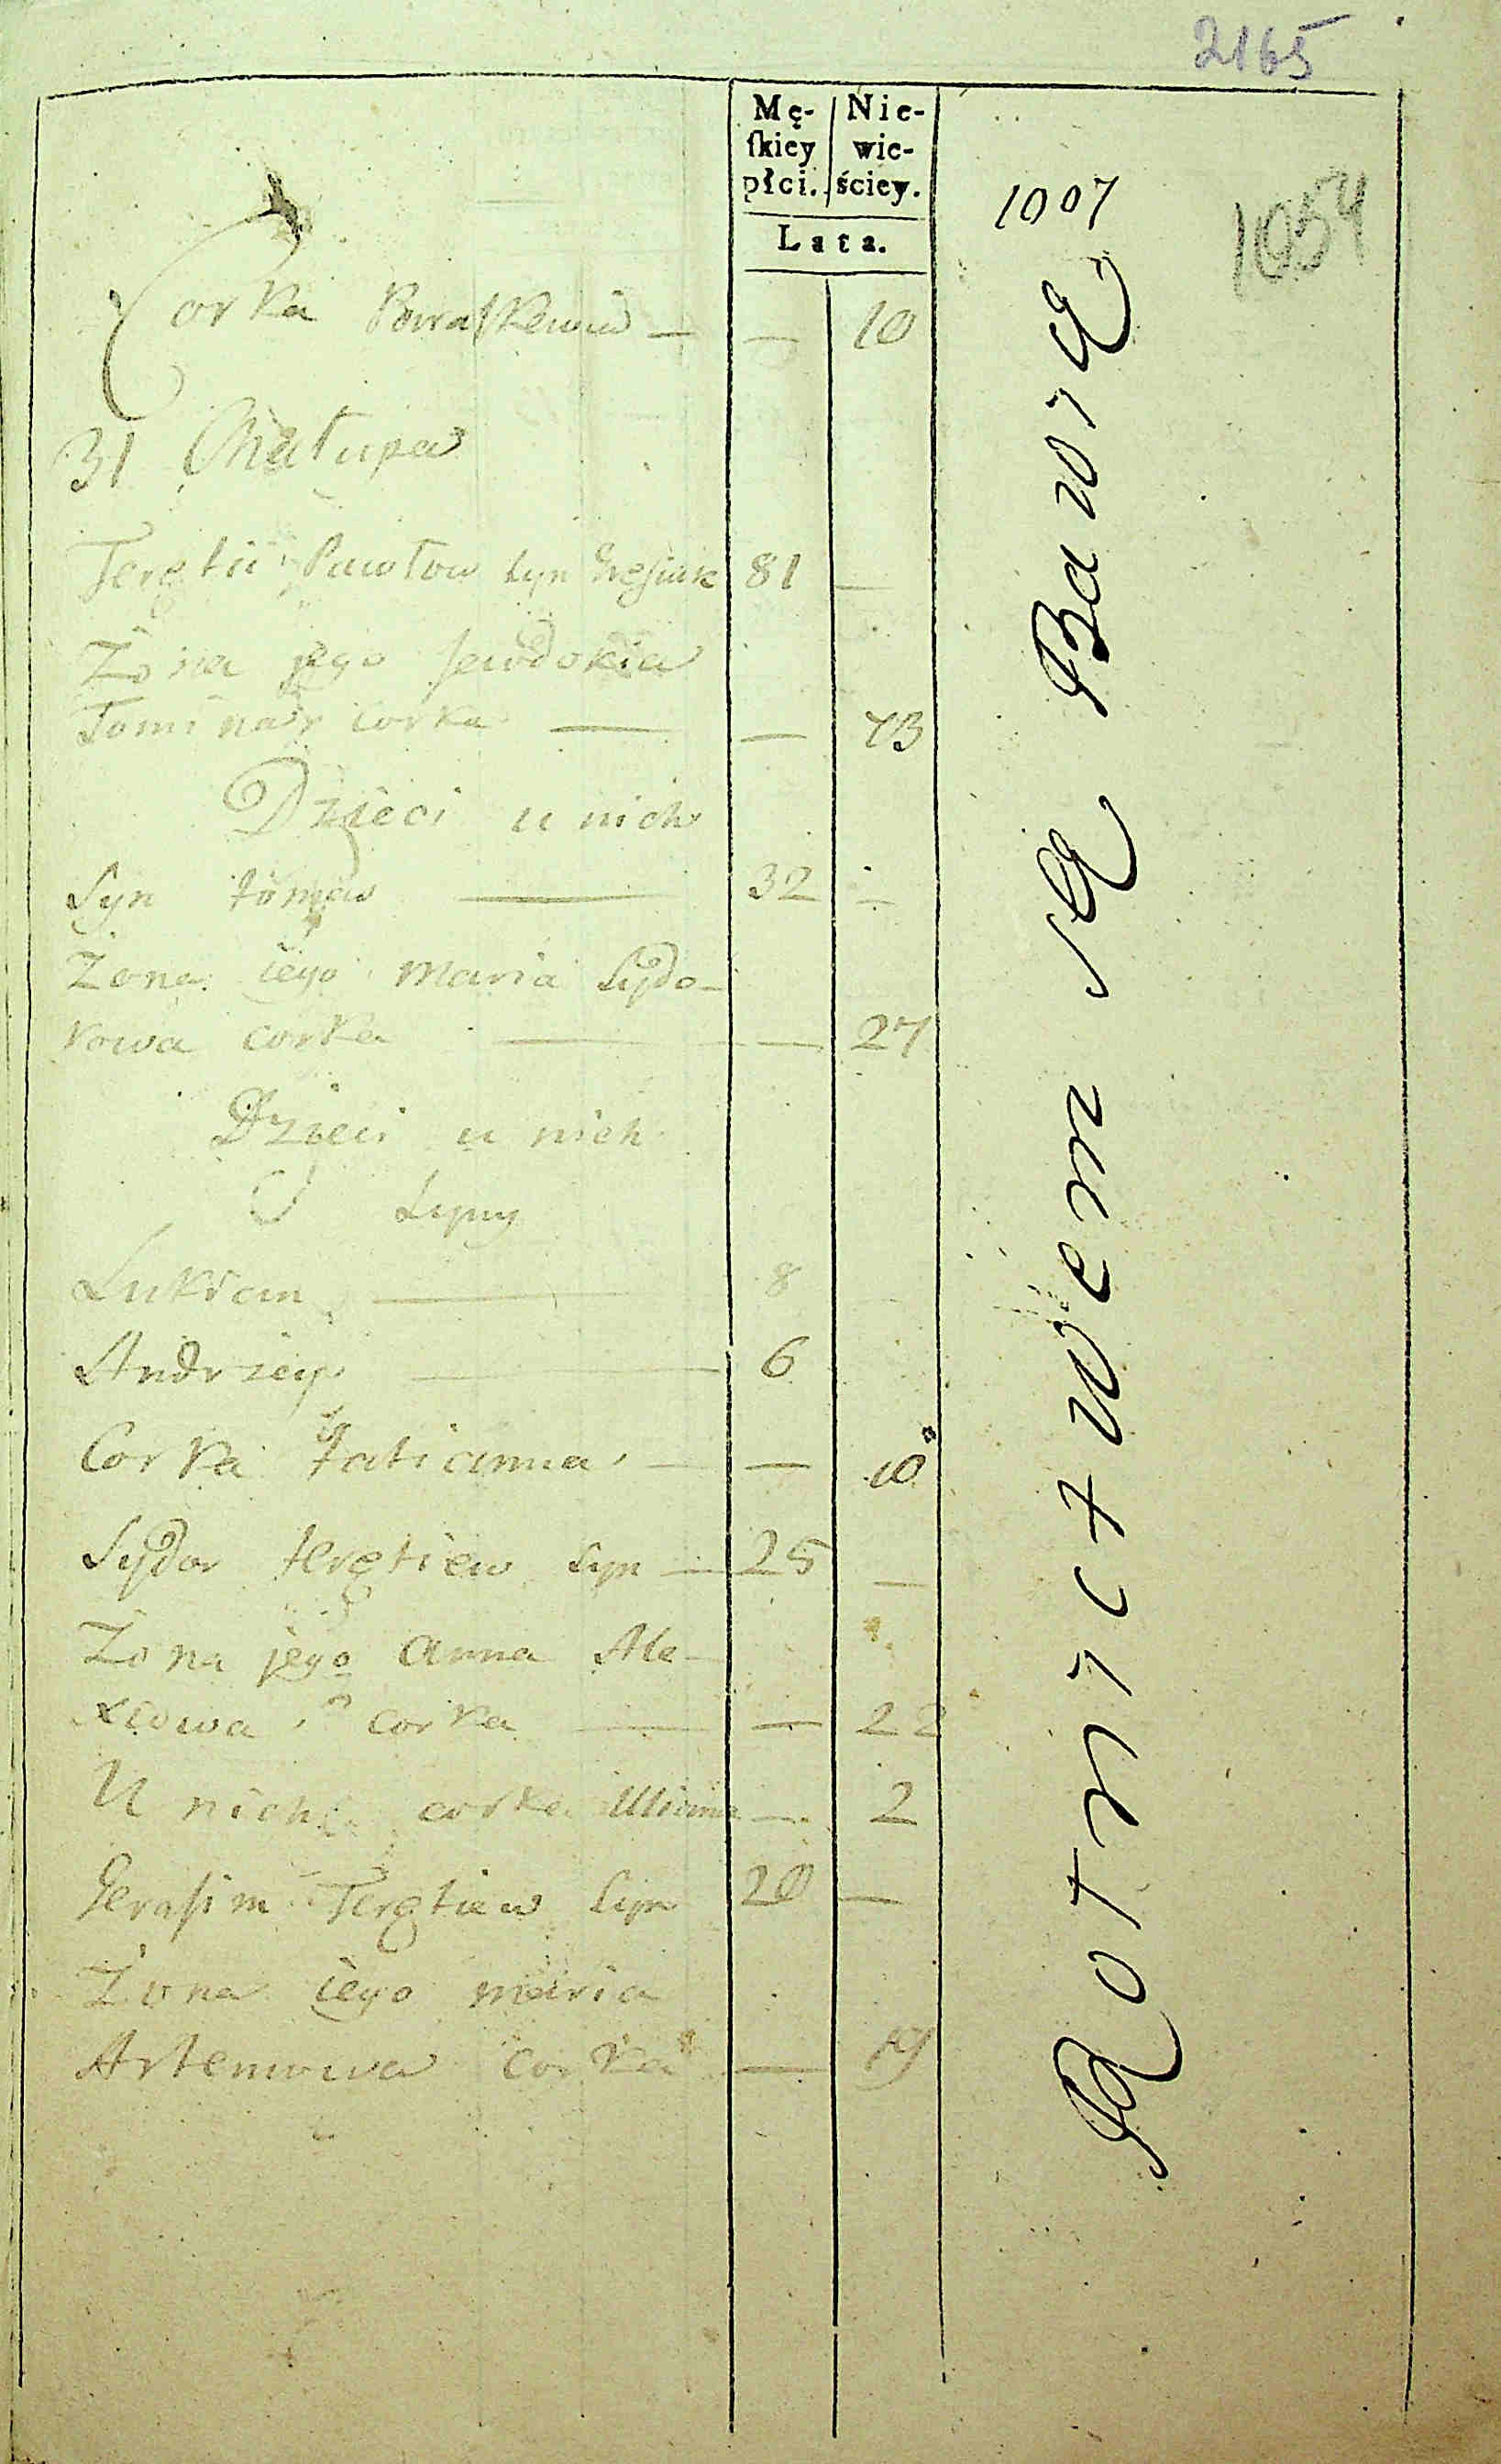 2165
Mę- Nie-
ſkiey wie-
płci. ściey.
Lata.
1007
1054
Corka Parraſkewia — — 10
31 Chałupa
Teretii Pawłow Syn 81 —
Żona jego Jewdokia
Tomina corka — — 73
Dzieci u nich
Syn tomas — 32 —
Zona iego Maria Sydo-
rowa corka — — 27
Dzieci u nich
Synÿ
Lukian — 8
Andrzey — 6
Corka tatianna — — 10
Sydor teretiew Syn — 25 —
Zona jego Anna Ale-
xiowa corka — — 22
U nich corka Uliana — 2
Gerasim Teretiew Syn 20 —
Zona iego maria
Artemowa Corka — 19
Rotmistrwem są Bawią